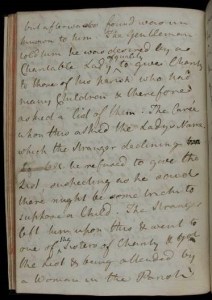 but afterwards found was not
known to him. The Gentleman
told him he was desired by a
Charitable Lady of quality to give Charity
to those of his Parish who had
many Children & therefore
asked a list of them. The Curée
upon this asked the Lady's name
which the Stranger declining
he refused to give the
List, suspecting as he said
there might be some trick to
suppose a Child. The Stranger
left him upon this & went to
one of the Sisters of Charity & got
the List & being attended by
a Woman in the Parish